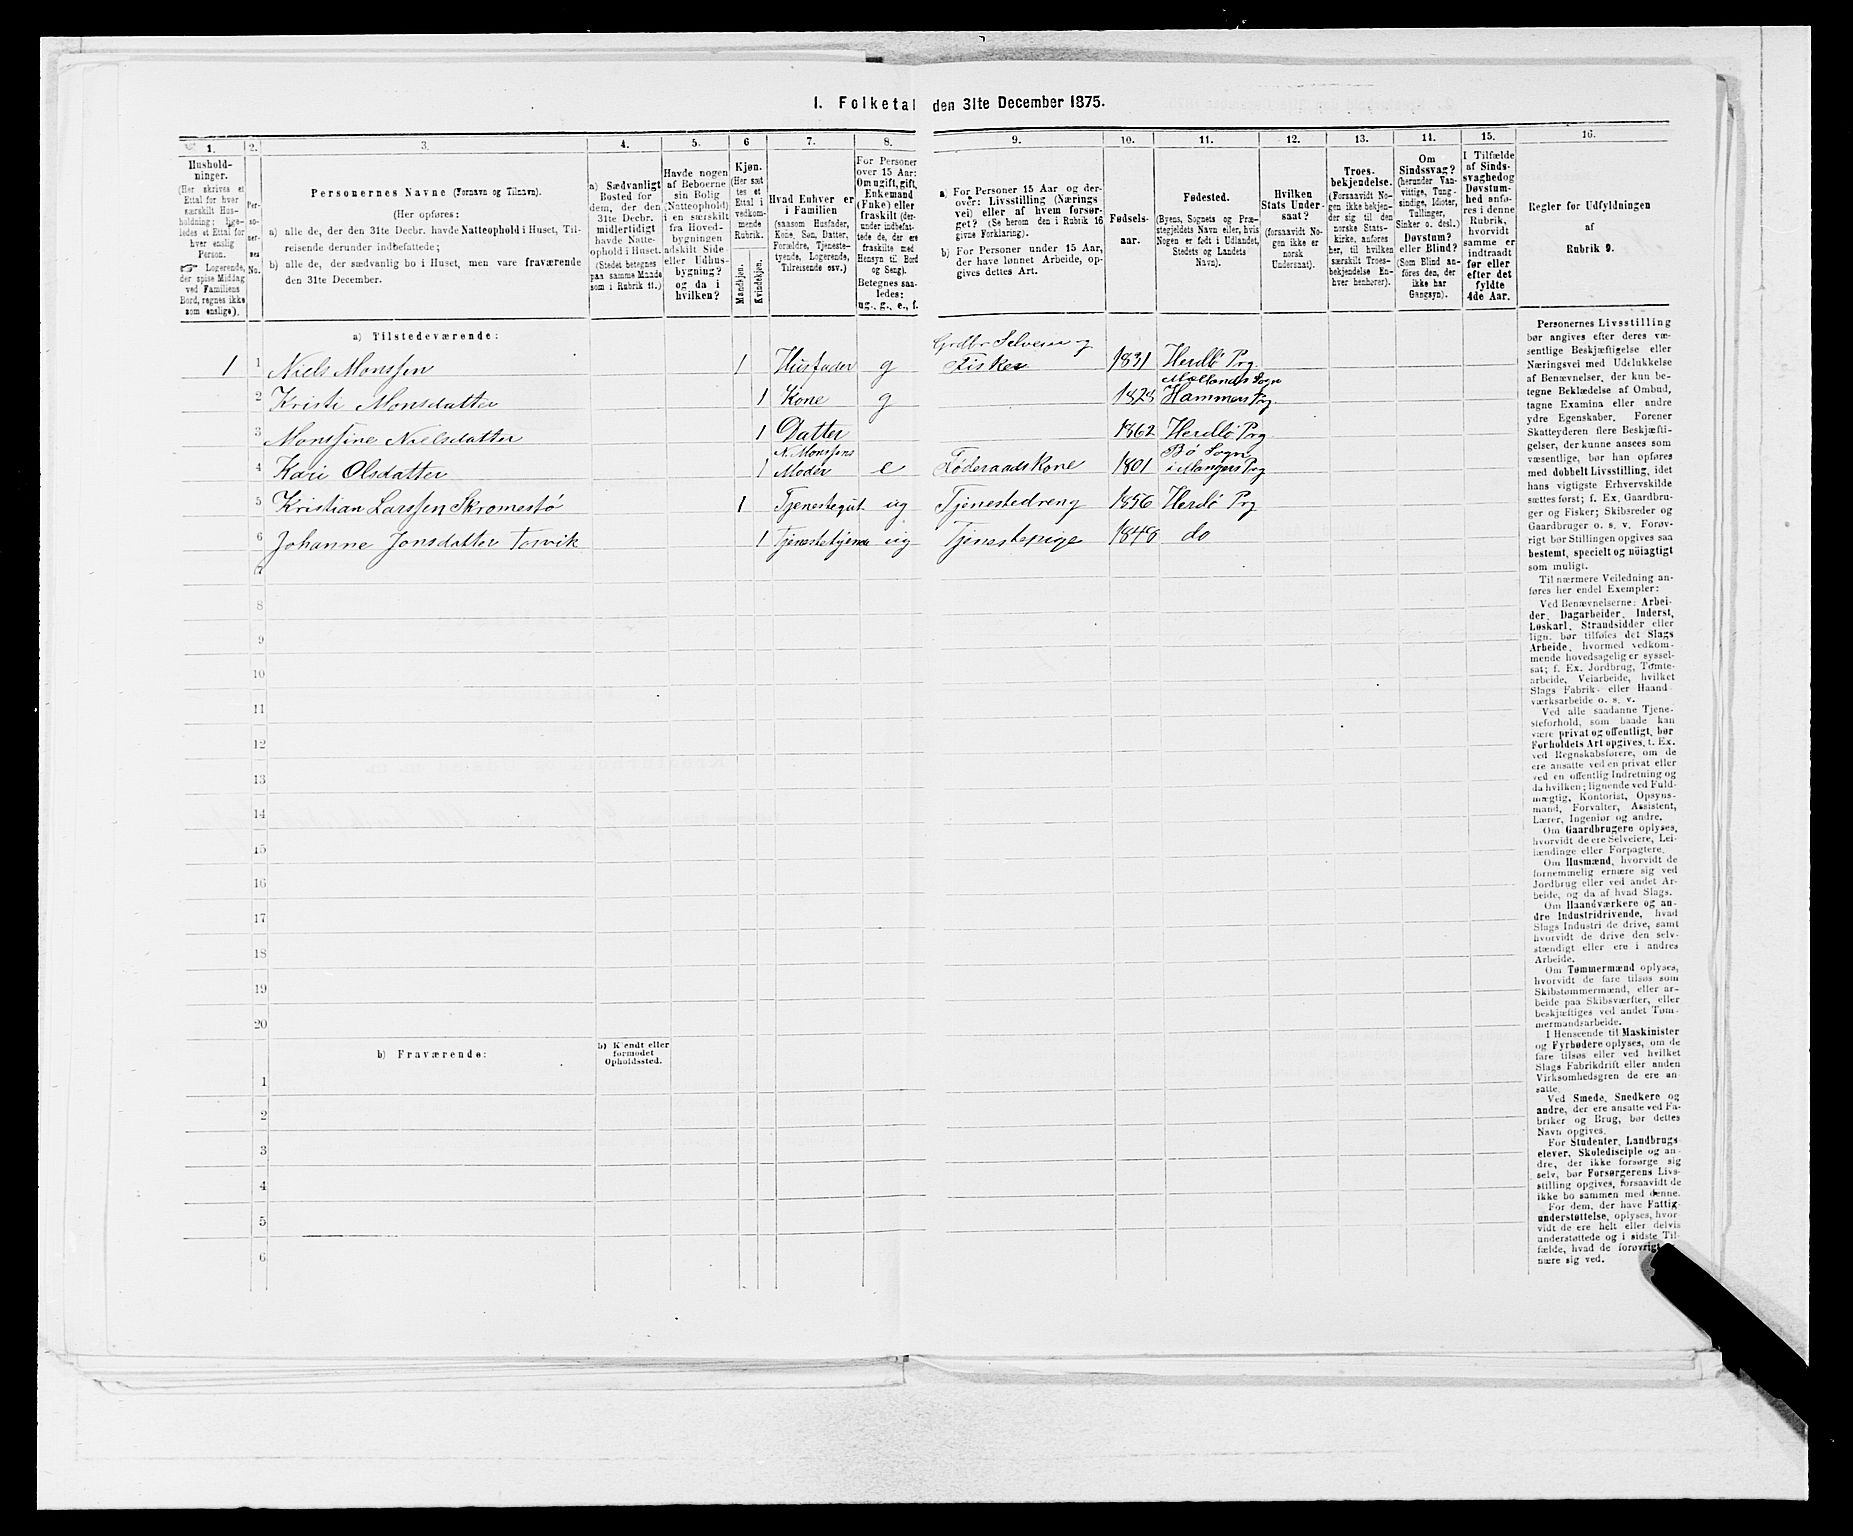 1. Folketal den 31te December 1875.
1. 2. 3. 4. 5. 6 7. 8. 9. 10. 11. 12. 13. 14. 15. 16.
Hushold-
ninger.
(Her skrives et
Ettal for hver
særskilt Hus-
holdning; lige-
ledes et Ettal for
hver enslig
Person.
☞ Logerende,
der spise Middag
ved Familiens
Bord, regnes ikke
som enslige).
Per-
so-
ner-
nes
No.
Personernes Navne (Fornavn og Tilnavn).
(Her opføres:
a) alle de, der den 31te Decbr. havde Natteophold i Huset, Til-
reisende derunder indbefattede;
b) alle de, der sædvanlig bo i Huset, men vare fraværende
den 31te December.
a) Sædvanligt
Bosted for
dem, der den
31te Decbr.
midlertidigt
havde Natte-
ophold i Huset.
(Stedet betegnes
paa samme Maade
som i Rubrik 11.)
Havde nogen
af Beboerne
sin Bolig
(Natteophold)
i en særskilt
fra Hoved-
bygningen
adskilt Side
eller Udhus-
bygning?
og da i
hvilken?
Kjøn.
(Her sæt
tes et
Ettal i
vedkom-
mende
Rubrik.
Mandkjøn.
Kvindekjøn.
Hvad Enhver er
i Familien
(saasom Husfader,
Kone, Søn, Datter,
Forældre, Tjeneste-
tyende, Logerende,
Tilreisende osv.)
For Personer
over 15 Aar:
Om ugift, gift,
Enkemand
(Enke) eller
fraskilt (der-
under indbefat-
tede de, der ere
fraskilte med
Hensyn til Bord
og Seng).
Betegnes saa-
ledes:
ug., g., e., f.
a. For Personer 15 Aar og der-
over: Livsstilling (Nærings
vei) eller af hvem forsør-
get? (Se herom den i Rubrik 16
givne Forklaring).
b) For Personer under 15 Aar,
der have lønnet Arbeide, op-
gives dettes Art.
Fødsels-
aar.
Fødested.
(Byens, Sognets og Præ-
stegjeldets Navn eller, hvis
Nogen er født i Udlandet,
Stedets og Landets
Navn).
Hvilken
Stats Under-
saat?
(forsaavidt No-
gen ikke er
norsk
Undersaat).
Troes-
bekjendelse.
(Forsaavidt No-
gen ikke bekjen-
der sig til den
norske Stats-
kirke, anføres
her, til hvilken
særskilt Troes-
bekjendelse En-
hver henhører).
Om
Sindssvag?
(herunder Van-
vittige, Tung-
sindige, Idioter,
Tullinger,
Sinker o. desl.)
Døvstum?
eller Blind?
(Som Blind an-
føres den, der
ikke har
Gangsyn).
I Tilfælde
af Sinds-
svaghed og
Døvstum-
hed anfø-
res i denne
Rubrik,
hvorvidt
samme er
indtraadt
før eller
efter det
fyldte
4de Aar.
Regler for Udfyldningen
af
Rubrik 9.
a) Tilstedeværende:
Grdbr Selveier og
1 1 Niels Monssen 1 Husfader g Fisker 1831 Herdlø Prg.
Mællands Sogn
2 Kristi Monsdatter 1 Kone g 1828 Hammers Prg.
3 Monsine Nielsdatter 1 Datter 1862 Herdlø Prg
N. Monssens Bø Sogn
4 Kari Olsdatter 1 Moder e Føderaadskone 1801 i Manger Prg
5 Kristian Larssen Skromestø 1 Tjenestegut ug Tjenestedreng 1856 Herdlø Prg
6 Johanne Jonsdatter Torvik 1 Tjenestetjende ug Tjenestepige 1848 do
7
8
9
10
11
12
13
14
15
16
17
18
19
20
b) Fraværende:
b) Kjendt eller
formodet
Opholdssted.
1
2
3
4
5
6
Personernes Livsstilling
bør angives efter deres væ-
sentlige Beskjæftigelse eller
Næringsvei med Udelukkelse
af Benævnelser, der kun be-
tegne Beklædelse af Ombud,
tagne Examina eller andre
ydre Egenskaber. Forener
Skatteyderen flere Beskjæfti-
gelser, der kunne ansees som
væsentlige, bør han opføres
med dobbelt Livsstilling, idet
hans vigtigste Erhvervskilde
sættes først; f. Ex. Gaardbru-
ger og Fisker; Skibsreder og
Gaardbruger o. s. v. Forøv-
rigt bør Stillingen opgives saa
bestemt, specielt og nöiagtigt
som muligt.
Til nærmere Veiledning an-
føres her endel Exempler:
Ved Benævnelserne: Arbei-
der, Dagarbeider, Inderst,
Løskarl, Strandsidder eller
lign. bør tilføies det Slags
Arbeide, hvormed vedkom-
mende hovedsagelig er syssel-
sat; f. Ex. Jordbrug, Tømte-
arbeide, Veiarbeide, hvilket
Slags Fabrik- eller Haand-
værksarbeide o. s. v.
Ved alle saadanne Tjene-
steforhold, som baade kan
være privat og offentligt, bør
Forholdets Art opgives, f. Ex.
ved Regnskabsførere, om de
ere ansatte ved en privat eller
ved en offentlig Indretning og
da hvilken; lignende ved Fuld-
mægtig, Kontorist, Opsyns-
mand, Forvalter, Assistent,
Lærer, Ingeniør og andre.
Om Gaardbrugere oplyses,
hvorvidt de ere Selveiere, Lei-
lændinge eller Forpagtere.
Om Husmænd, hvorvidt de
fornemmelig ernære sig ved
Jordbrug eller ved andet Ar-
beide, og da af hvad Slags.
Om Haandværkere og an-
dre Industridrivende, hvad
Slags Industri de drive, samt
hvorvidt de drive den selv-
stændigt eller ere i andres
Arbeide.
Om Tømmermænd oplyses,
hvorvidt de fare tilsøs som
Skibstømmermænd, eller ar-
beide paa Skibsværfter, eller
beskjæftiges ved andet Tøm-
mermandsarbeide.
I Henseende til Maskinister
og Fyrbødere oplyses, om de
fare tilsøs eller ved hvilket
Slags Fabrikdrift eller anden
Virksomhedsgren de ere an-
satte.
Ved Smede, Snedkere og
andre, der ere ansatte ved Fa-
briker og Brug, bør dettes
Navn opgives.
For Studenter, Landbrugs-
elever, Skoledisciple og an-
dre, der ikke forsørge sig
selv, bør Forsørgerens Livs-
stilling opgives, forsaavidt de
ikke bo sammen med denne.
For dem, der have Fattig-
understøttelse, oplyses, hvor-
vidt de ere helt eller delvis
understøttede og i sidste Til-
fælde, hvad de forøvrigt
nære sig ved.